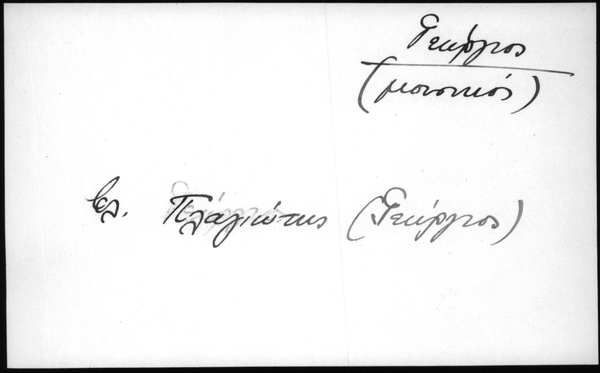 Γεώργιος
(μουσικός)
βλ. Πλαγιώτης (Γεώργιος)